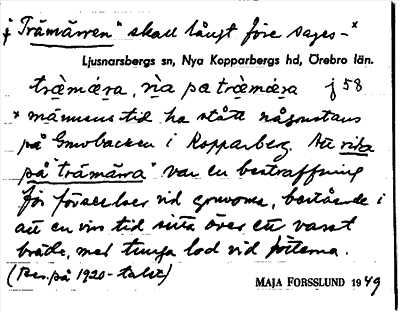 "Trämärren" skall långt före sages-x
Ljusnarsbergs sn, Nya Kopparbergs hd, Örebro län.
trä̀mǽra, ri̇̀a pa trä̀mǽra f 58
x männens tid ha stått någonstans
på Gruvbacken i Kopparberg. Att rida
på trämärra" var en bestraffning
för förseelser vid gruvorna, bestående i
att en viss tid sitta över ett vasst
bräde, med tunga lod vid fötterna.
(Ber. på 1920-talet)
MAJA FORSSLUND 1949